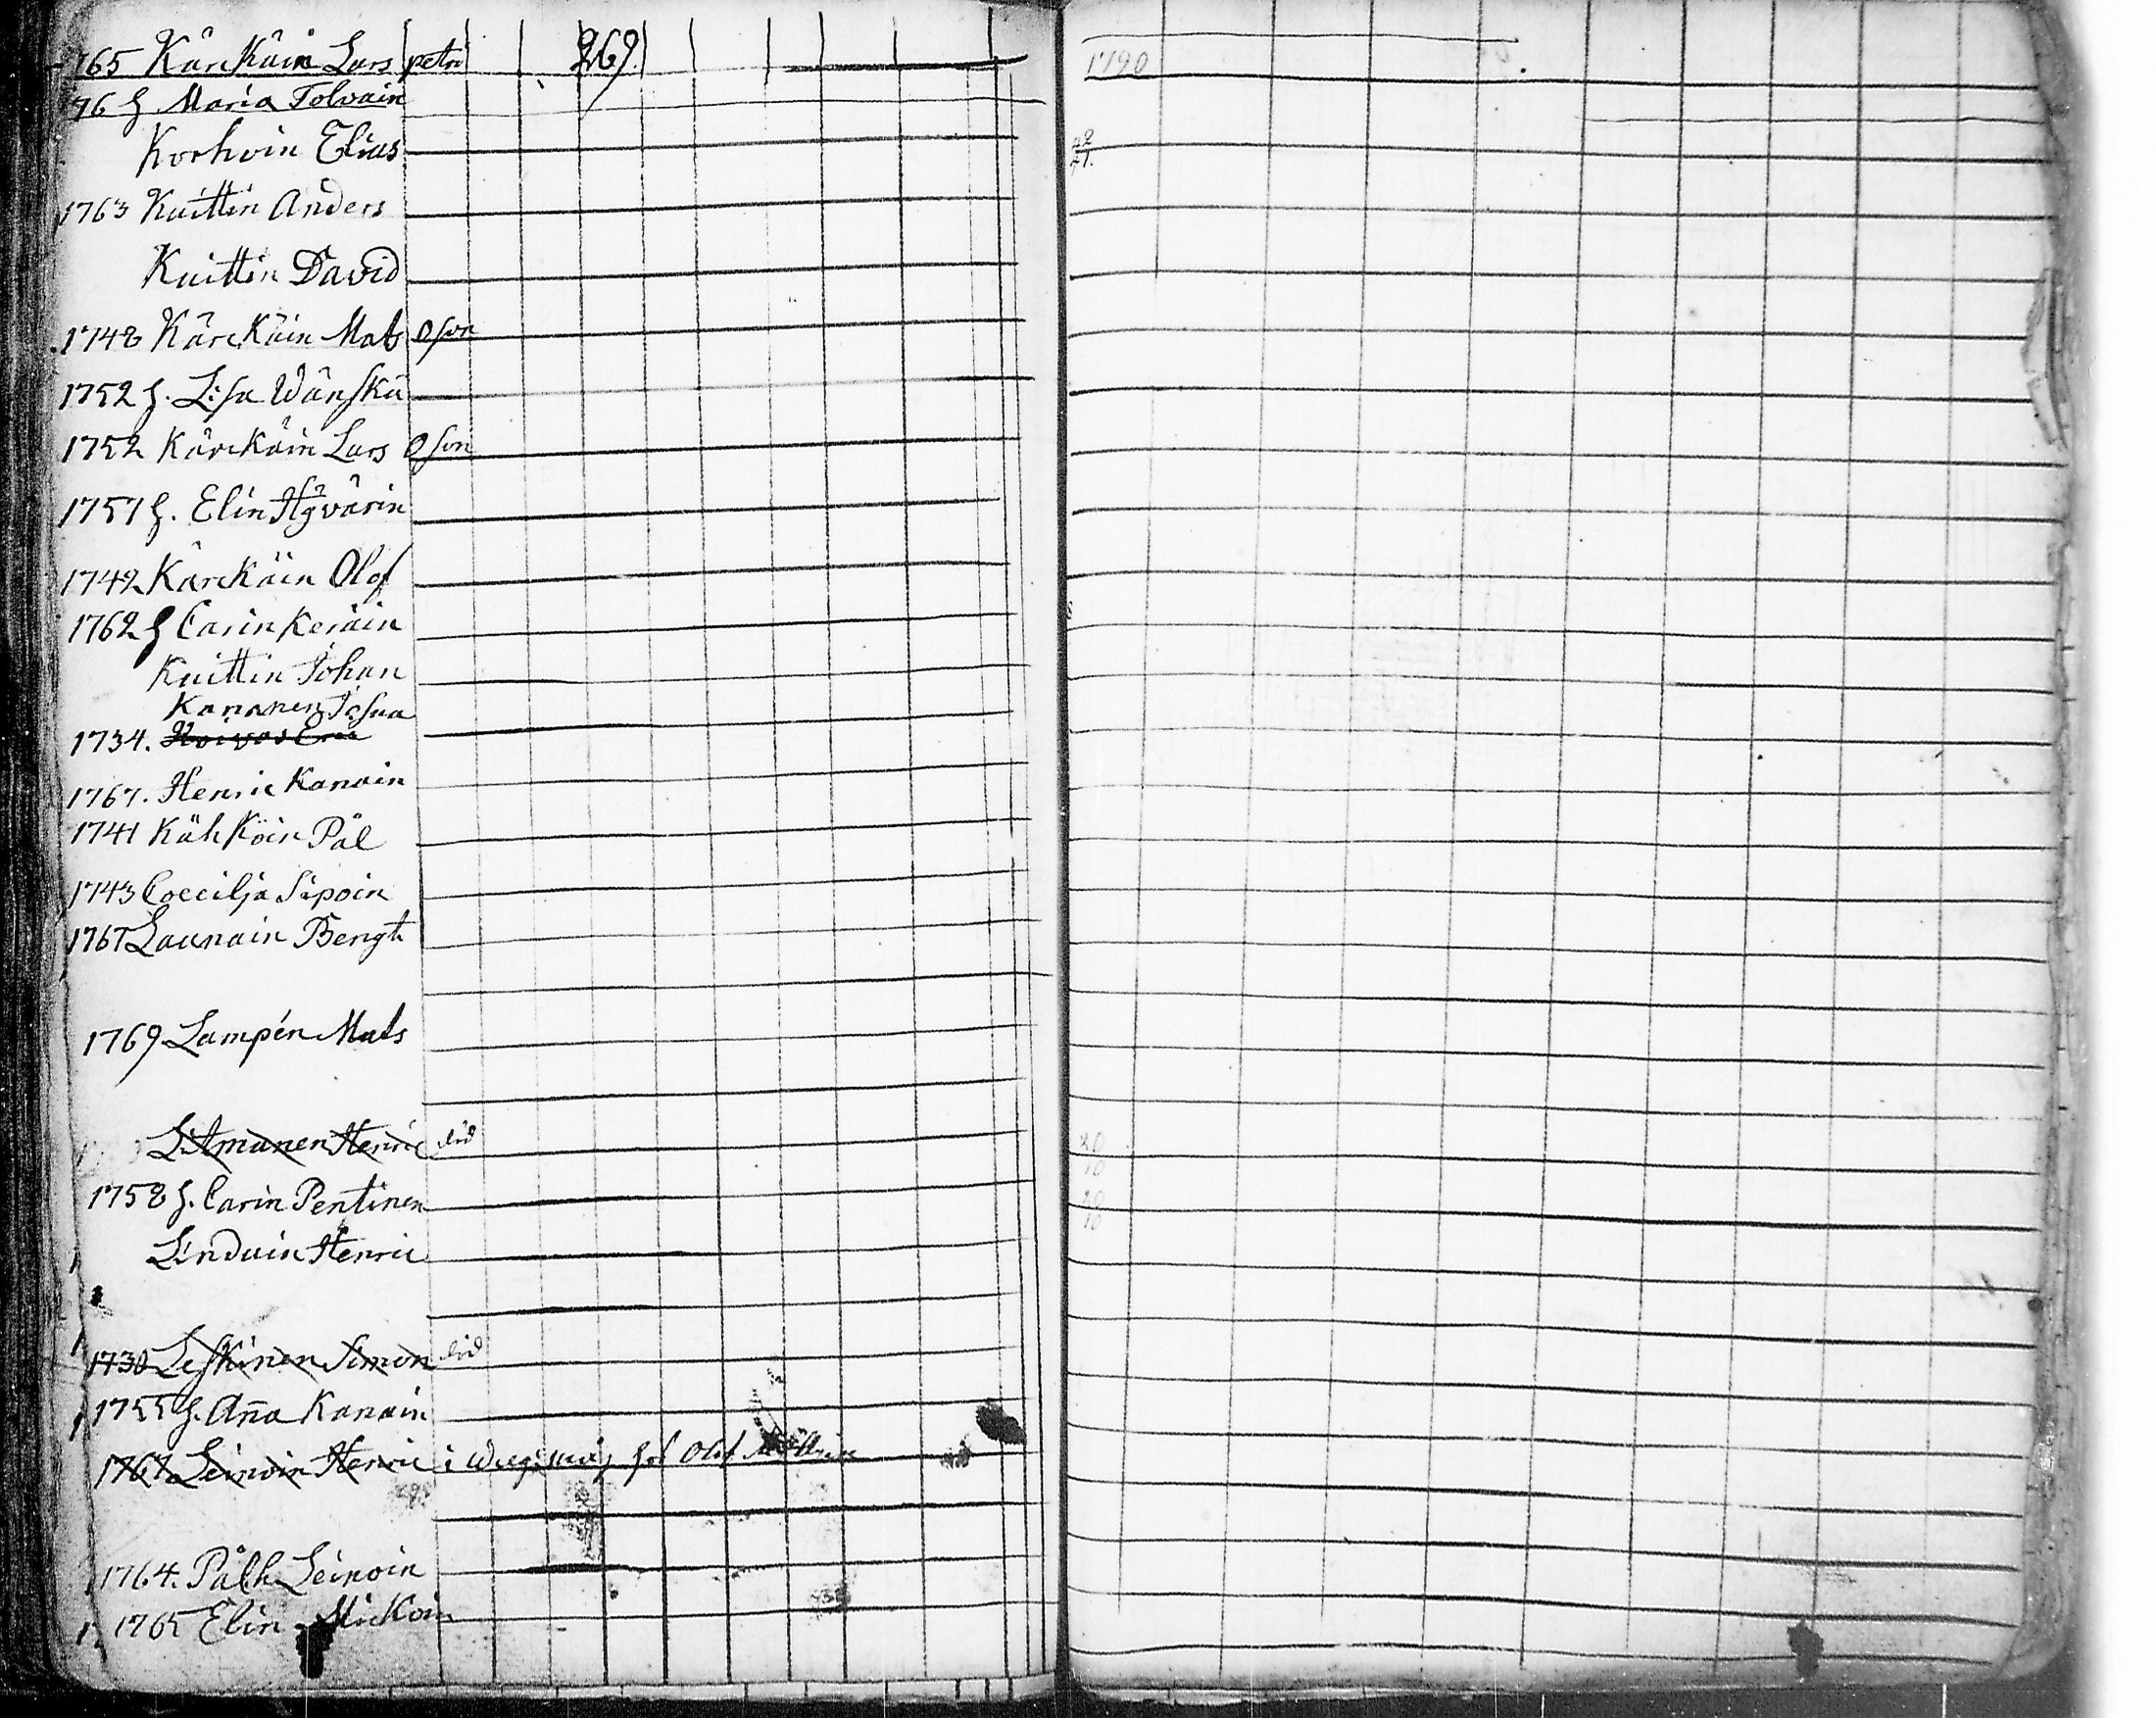 165 Kärkäin Lars petri 269.
76 h Maria Tolvain
Korhoin Elias
1763 Kuittin Anders
Kuittin David
1748 Kärckäin Mats Oson
1752 h. Lisa Wänskä
1752 Kärckäin Lars Oson
1757 h. Elin Hyvärin
1742 Kärckäin Olof
1762 h Carin Keräin
Kuittin Johan
Kananen Josua
1734.
1767. Henric Kanain
1741 Kähköin Pål
1743 Coecilja Sipoin
1767 Launain Bengt
1769 Lampén Mats
Litmanen Henric död
1758 h. Carin Pentinen
Linduin Henric
1730 Leskinen Simon död
1755 h. Aña Kanain
1767 Leinoin Henric i hos Olof
1764. Pålh Leinoin
1765 Elin Mickoin
1790
20
10
20
10